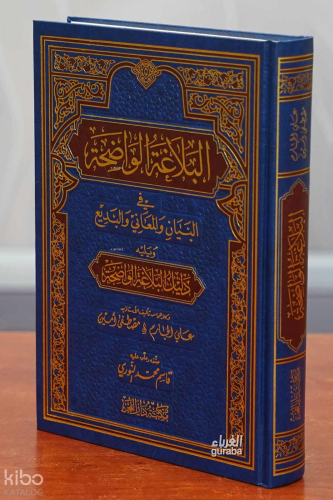 البلاغة الواضحة
في
البيان والمعاني والبديع
ويليه
دليل البلاغة الواضحة
علي الجارم و مصطفى أمين
قاسم محمد النوري
البلاغة الواضحة
الغرباء
guraba
kibo
KATALOG